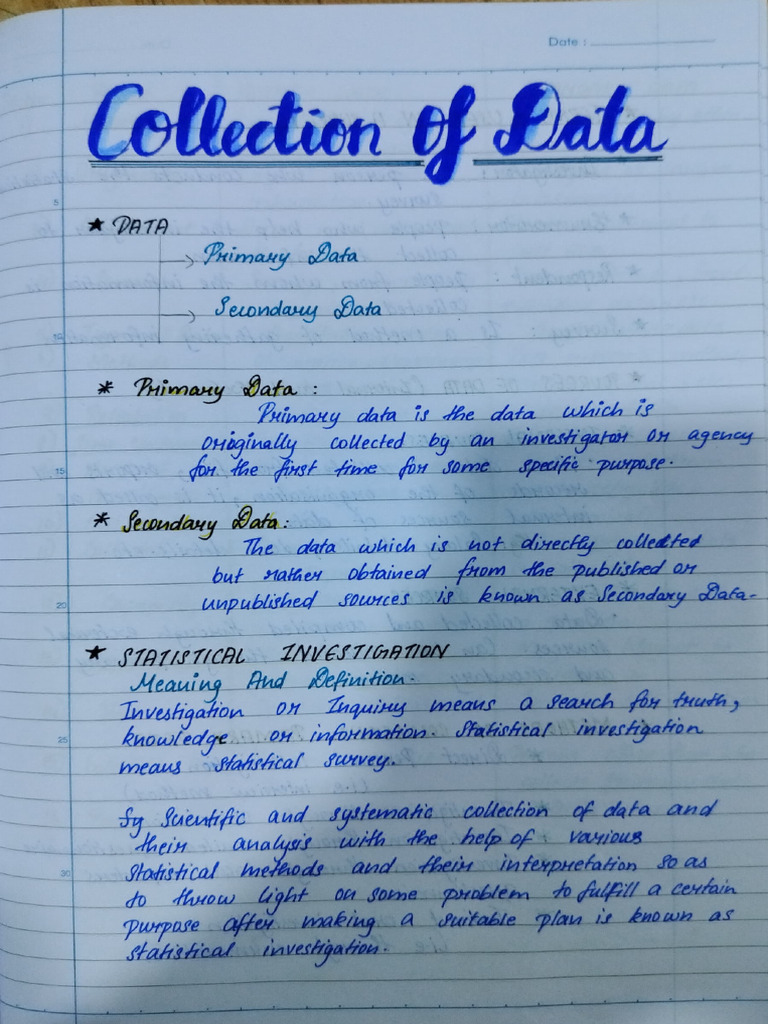 Date :
Collection of Data
5
★ DATA
→ Primary Data
→ Secondary Data
10
* Primary Data :
Primary data is the data which is
originally collected by an investigator or agency
15 for the first time for some specific purpose.
* Secondary Data :
The data which is not directly collected
but rather obtained from the published or
20 unpublished sources is known as Secondary Data.
★ STATISTICAL INVESTIGATION
Meaning And Definition.
Investigation or Inquiry means a search for truth,
25 knowledge or information. Statistical investigation
means statistical survey.
Scientific and systematic collection of data and
their analysis with the help of various
30 statistical methods and their interpretation so as
to throw light on some problem to fulfill a certain
purpose after making a suitable plan is known as
statistical investigation.